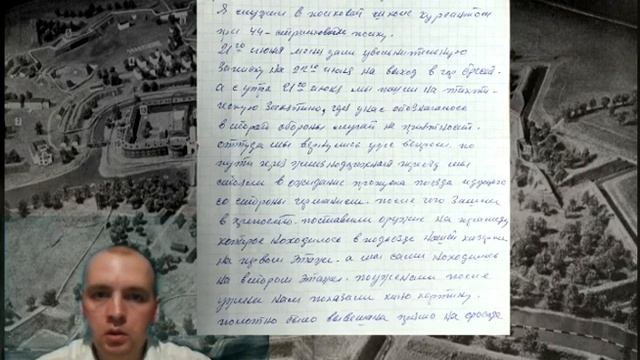 Я служил в полковой школе курсантом
при 44-стрелковом полку.
21го июня мне дали увольнительную
записку на 22го июня на выход в гор Брест.
А с утра 21го июня мы пошли на такти-
ческую занятию, где у нас отозвалось
в второй стороны играет не привет
оттуда мы вернулись уже вечером. по
пути через железнодорожный переезд мы
стояли в ожидание прохода поезда идущего
со стороны германии. после чего зашли
в крепость. поставили оружие на пирамиду
которое находилось в подъезде нашей казармы
на первом этаже. а мы сами находились
на втором этаже. поужинали после
ужина нам показали кино картину.
полотно было вывешано прямо на